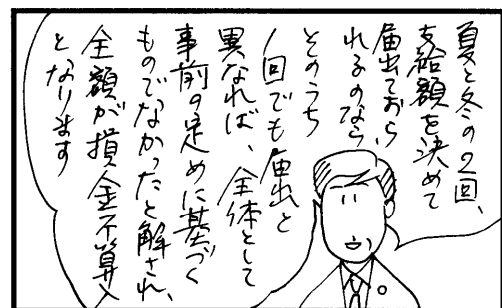 夏と冬の2回、
支給額を決めて
届出ておら
れるのなら、
そのうち
1回でも届出と
異なれば、全体として
事前の定めに基づく
ものでなかったと解され、
全額が損金不算入
となります